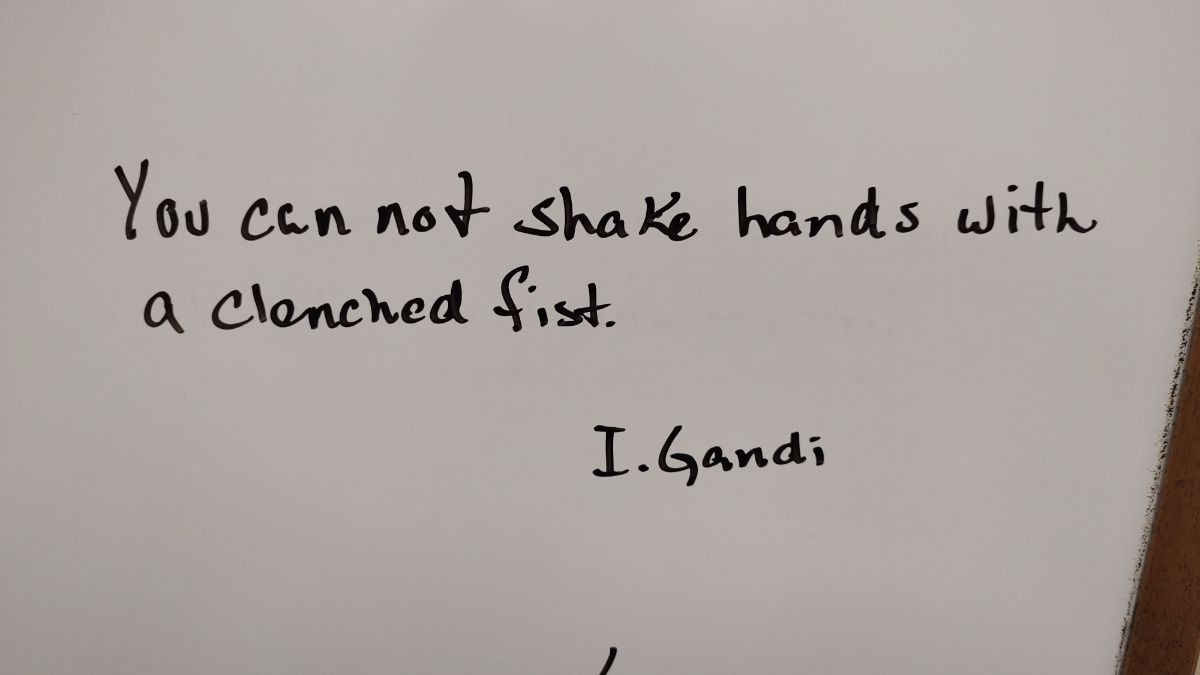 You can not shake hands with
a clenched fist.
I. Gandi